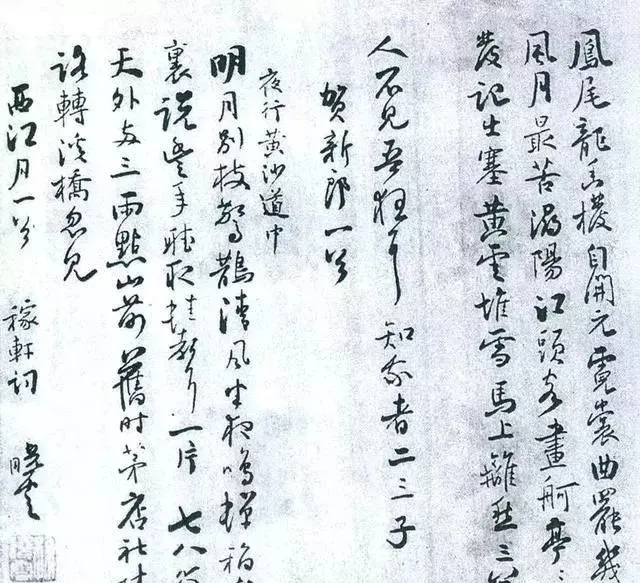 鳳尾龍香撥自開元霓裳曲罷幾
風月最苦潯陽江頭客畫舸亭
發記出塞黃雲堆雪馬上離愁三
人不見吾狂耳知我者二三子
贺新郎一首
夜行黃沙道中
明月別枝驚鵲清風半夜鳴蟬稻
裏說豐年聽取蛙聲一片七八
天外兩三雨點山前舊時茅店社
路轉溪橋忽見
西江月一首 稼軒詞